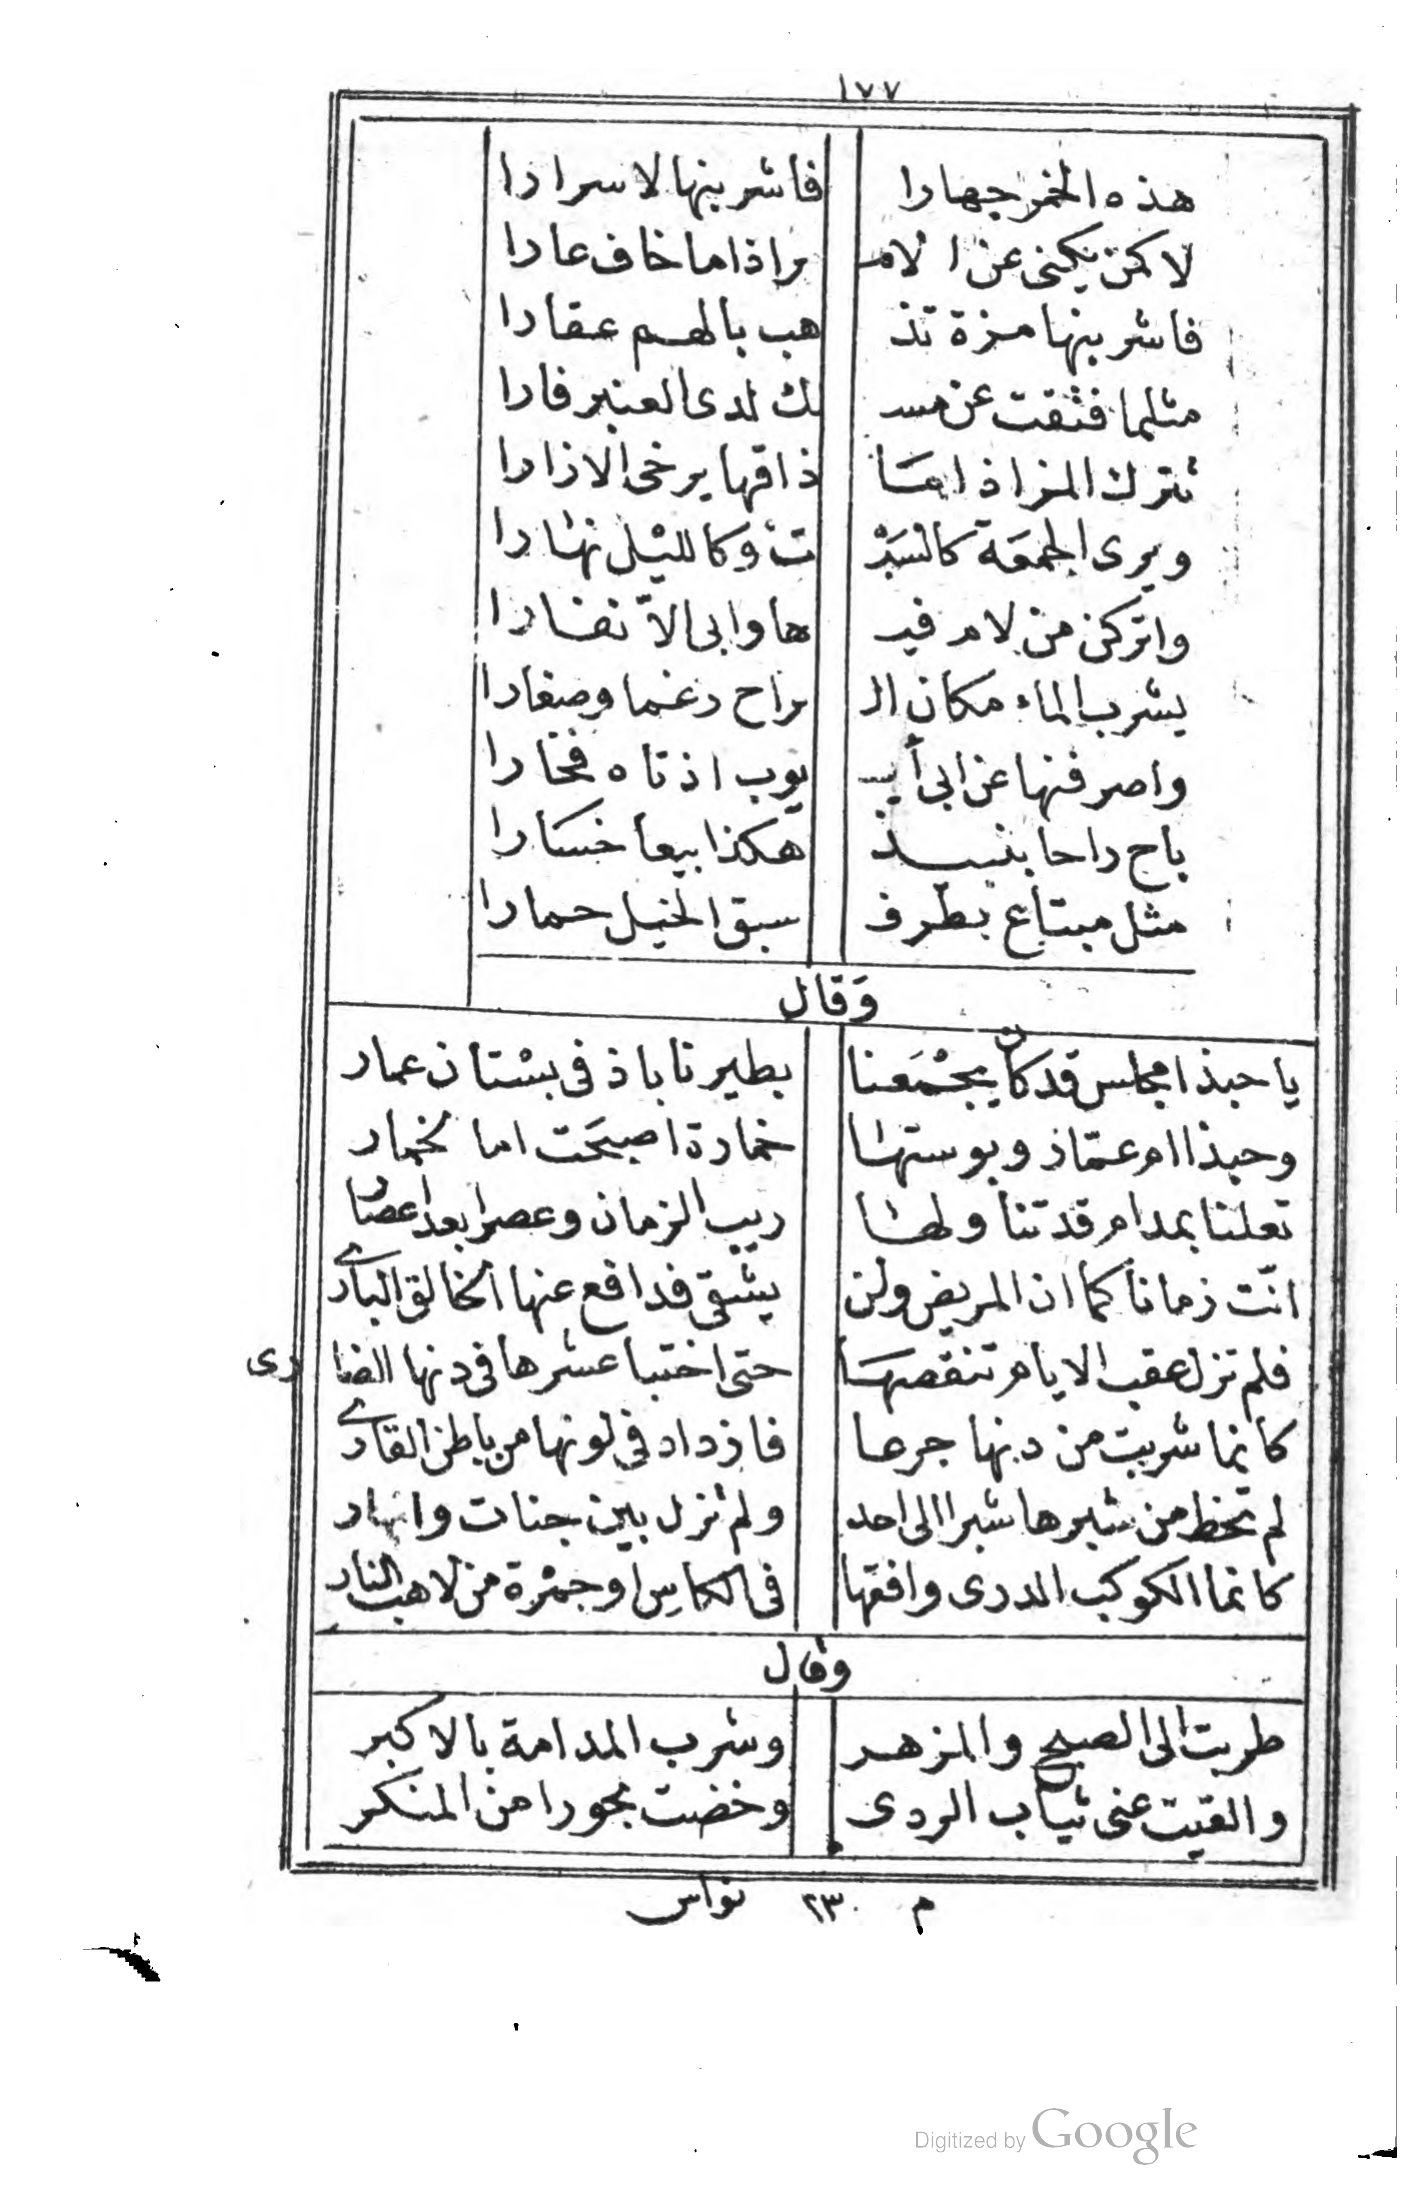 ١٧٧
هذه الخمر جهارا فاشربنها لا سرارا
لا كمن يكنى عن الام‍ ‍ر اذا ما خاف عارا
فاشربنها مزة تذ هب بالهم عقارا
مثلما فتقت عن مس‍ ‍ك لدى العنبر فارا
تترك المرا ذا ما ذاقها يرخى الازارا
ويرى الجمعة كالسَّبْ‍ ت وكالليل نهارا
واتركن من لام في‍ ‍ها وابى الاّ نفارا
يشرب الماء مكان ال‍ ‍راح رغما وصغارا
واصرفنها عن ابى أي‍ ‍وب اذ تاه فخارا
باح راحا بنبيذ هكذا بيعا خسارا
مثل مبتاع بطرف سبق الخيل حمارا
وَقال
يا حبذا مجلس قد كان يجمَعنا بطير ناباذ فى بسْتان عمار
وحبذا ام عمّار وبوستها خمارة اصبحَت اما لخمار
تعلنا بمدام قد تنا ولها ريب الزمان وعصرا بعد اعصار
انّت زمانا كما ان المريض ولن يشقى فدافع عنها الخالق البارى
فلم تزل عقب الايام تنقصها حتى اختبا عشرها فى دنها الضارى
كانما شربت من دنها جرعا فازداد فى لونها من باطن القارى
لم تخط من شبرها شبرا الى احد ولم تزل بين جنات وانهار
كانما الكوكب الدرى وافقها فى الكاس او جمرة من لاهب النار
وقال
طربت الى الصبح والمزهر وشرب المدامة بالاكبر
والقيت عنى ثياب الردى وخضت بحورا من المنكر
م ٢٣٠ نواس
Digitized by Google